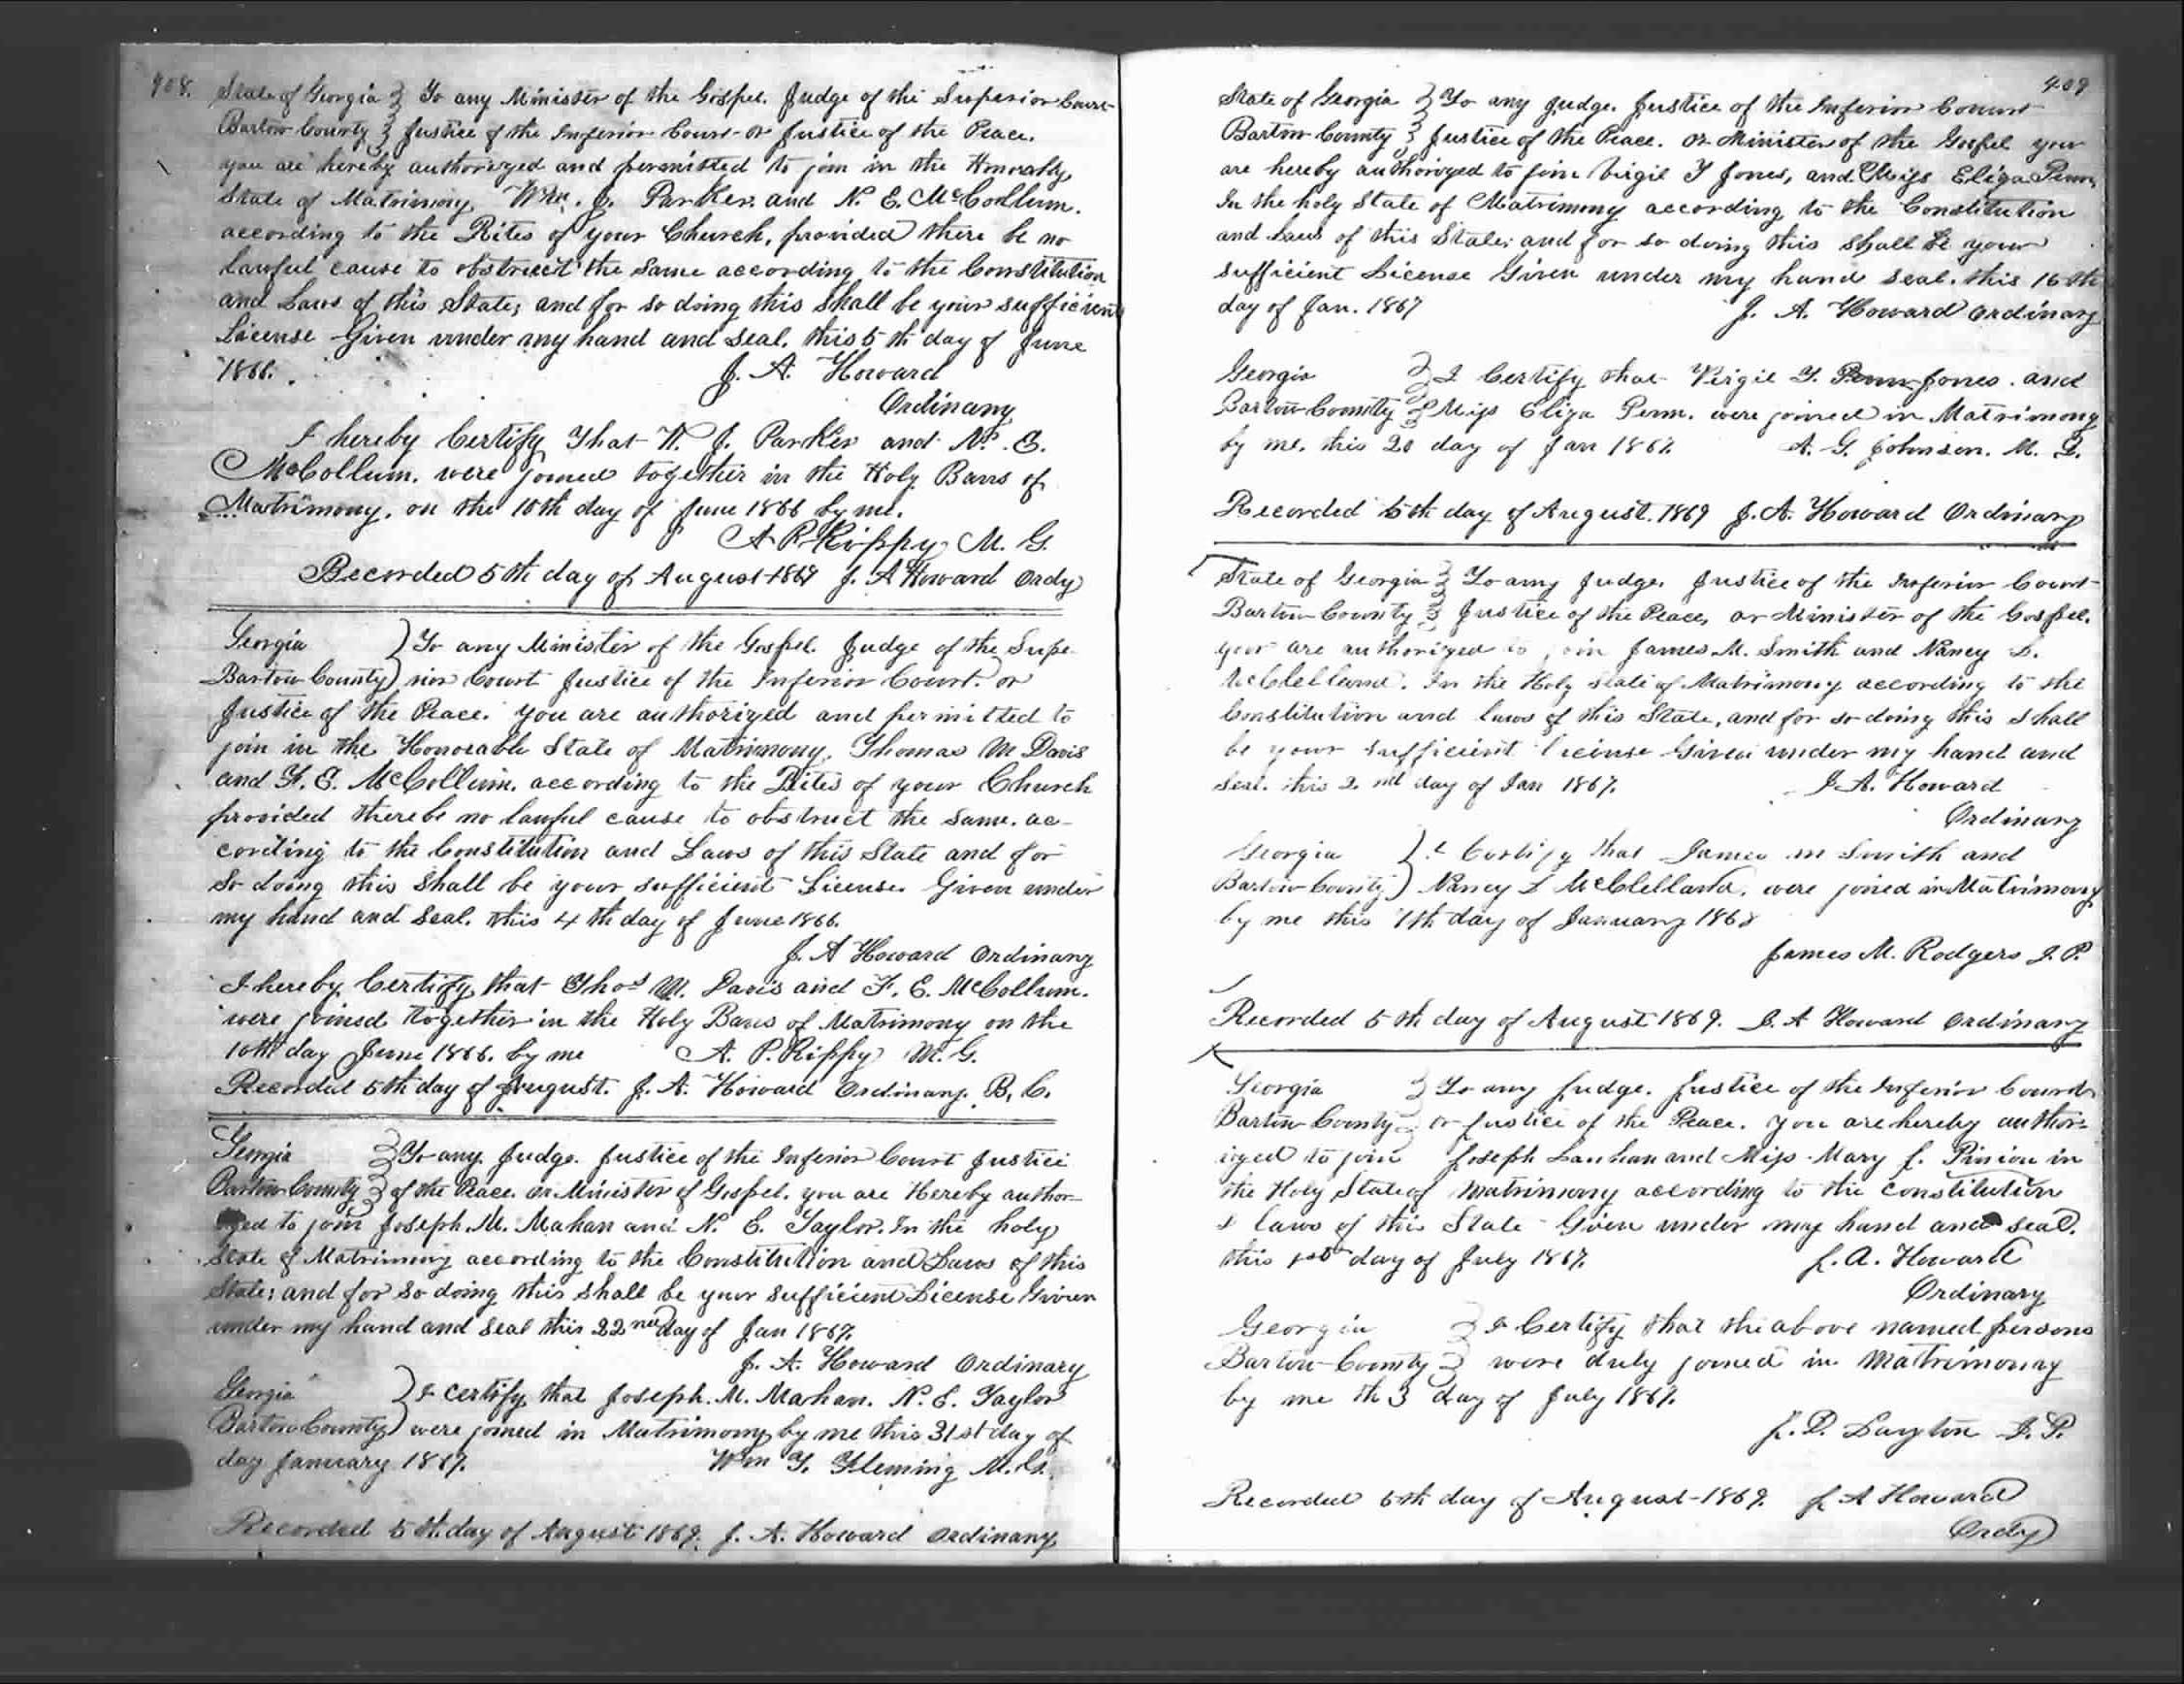 408.
State of Georgia } To any Minister of the Gospel. Judge of the Superior Court
Bartow County } Justice of the Inferior Court or Justice of the Peace.
you are hereby authorized and permitted to join in the Honorable
State of Matrimony, Wm. J. Parker and N. E. McCollum.
according to the Rites of your Church, provided there be no
lawful cause to obstruct the same according to the Constitution
and Laws of this State; and for so doing this shall be your sufficient
License Given under my hand and seal, this 5th day of June
1866.
J. A. Howard
Ordinary
I hereby Certify that W. J. Parker and N. E.
McCollum. were joined together in the Holy Banns of
Matrimony, on the 10th day of June 1866 by me.
A P. Rippy M. G.
Recorded 5th day of August 1869 J. A Howard Ordy
Georgia } To any Minister of the Gospel. Judge of the Supe-
Bartow County } rior Court Justice of the Inferior Court. or
Justice of the Peace. you are authorized and permitted to
join in the Honorable State of Matrimony, Thomas M Davis
and F. E. McCollum. according to the Rites of your Church
provided there be no lawful cause to obstruct the same. ac-
cording to the Constitution and Laws of this State and for
so doing this shall be your sufficient License. Given under
my hand and seal. this 4th day of June 1866.
J. A Howard Ordinary
I hereby Certify that Thos M. Davis and F. E. McCollum.
were joined together in the Holy Banns of Matrimony on the
10th day June 1866. by me A. P. Rippy M. G.
Recorded 5th day of August. J. A. Howard Ordinary. B. C.
Georgia } To any Judge. Justice of the Inferior Court Justice
Bartow County } of the Peace. or Minister of Gospel. you are Hereby author-
ized to join Joseph M. Mahan and N. E. Taylor. In the holy
State of Matrimony according to the Constitution and Laws of this
State; and for so doing this shall be your sufficient License Given
under my hand and seal this 22nd day of Jan 1867.
J. A. Howard Ordinary
Georgia } I certify that Joseph. M. Mahan. N. E. Taylor
Bartow County } were joined in Matrimony by me this 31st day of
day January 1867. Wm Y. Fleming M. G.
Recorded 5th day of August 1869. J. A. Howard Ordinary
409
State of Georgia } To any Judge. Justice of the Inferior Court
Bartow County } Justice of the Peace. or Minister of the Gospel you
are hereby authorized to join Virgil Y Jones, and Miss Eliza Penn,
In the holy State of Matrimony according to the Constitution
and Laws of this State; and for so doing this shall be your
sufficient License Given under my hand seal. this 16th
day of Jan. 1867 J. A. Howard Ordinary
Georgia } I Certify that Virgil Y. Penn Jones. and
Bartow County } Miss Eliza Penn. were joined in Matrimony
by me. this 20 day of Jan 1867. A. G. Johnson. M. G.
Recorded 5th day of August. 1869 J. A. Howard Ordinary
State of Georgia } To any Judge, Justice of the Inferior Court
Bartow County } Justice of the Peace, or Minister of the Gospel.
your are authorized to join James M. Smith and Nancy L.
McClelland. In the Holy State of Matrimony according to the
Constitution and laws of this State, and for so doing this shall
be your sufficient license Given under my hand and
Seal. this 2nd day of Jan 1867.
J. A. Howard
Ordinary
Georgia } I Certify that James M Smith and
Bartow County } Nancy L McClelland. were joined in Matrimony
by me this 7th day of January 1868
James M. Rodgers J. P.
Recorded 5th day of August 1869. J. A Howard Ordinary
Georgia } To any Judge. Justice of the Inferior Court
Bartow County } or Justice of the Peace. you are hereby author-
ized to join Joseph Lanhan and Miss Mary J. Pinion in
the Holy State of Matrimony according to the constitution
& laws of this State Given under my hand and seal.
this 1st day of July 1867.
J. A. Howard
Ordinary
Georgia } I Certify that the above named persons
Bartow County } were duly joined in Matrimony
by me th 3 day of July 1867.
J. D. Layton J. P.
Recorded 5th day of August 1869. J A Howard
Ordy